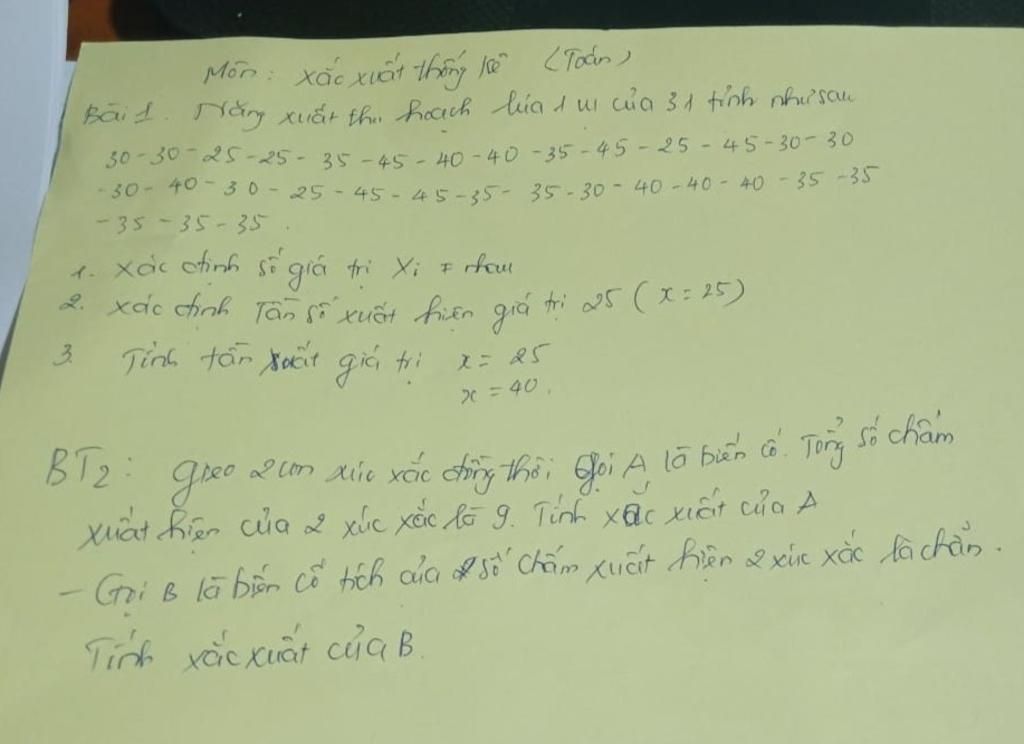 Môn: xác xuất thống kê (Toán)
Bài 1. Năng xuất thu hoạch lúa 1 vụ của 31 tỉnh như sau
30-30-25-25-35-45-40-40-35-45-25-45-30-30
-30-40-30-25-45-45-35-35-30-40-40-40-35-35
-35-35-35.
1. xác định số giá trị Xi ≠ nhau
2. xác định Tần số xuất hiện giá trị 25 (x = 25)
3 Tính tần xuất giá trị x = 25
x = 40.
BT2: gieo 2 con xúc xắc đồng thời Gọi A là biến cố. Tổng số chấm
xuất hiện của 2 xúc xắc là 9. Tính xác xuất của A
- Gọi B là biến cố tích của số chấm xuất hiện 2 xúc xắc là chẵn.
Tính xác xuất của B.